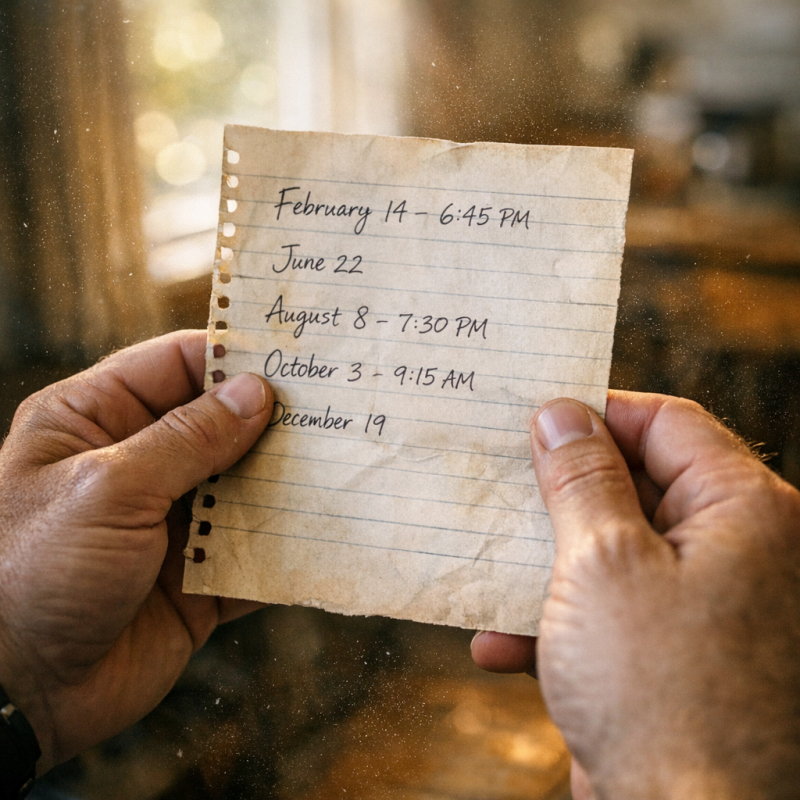 February 14 - 6:45 PM
June 22
August 8 - 7:30 PM
October 3 - 9:15 AM
December 19